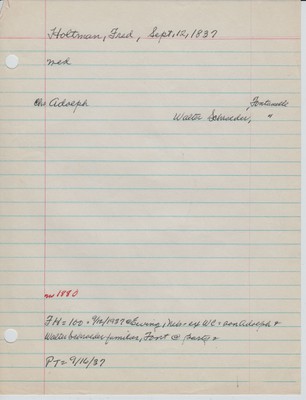 Holtman, Fred, Sept. 12, 1837
med
Ch: Adolph
Fontanelle
Walter Schroeder, "
1880
FH = 100 = 9/12/1937 @ Ewing, Nebr = ex WC = son Adolph &
Walter Schroeder families, Font @ party =
PT = 9/16/37